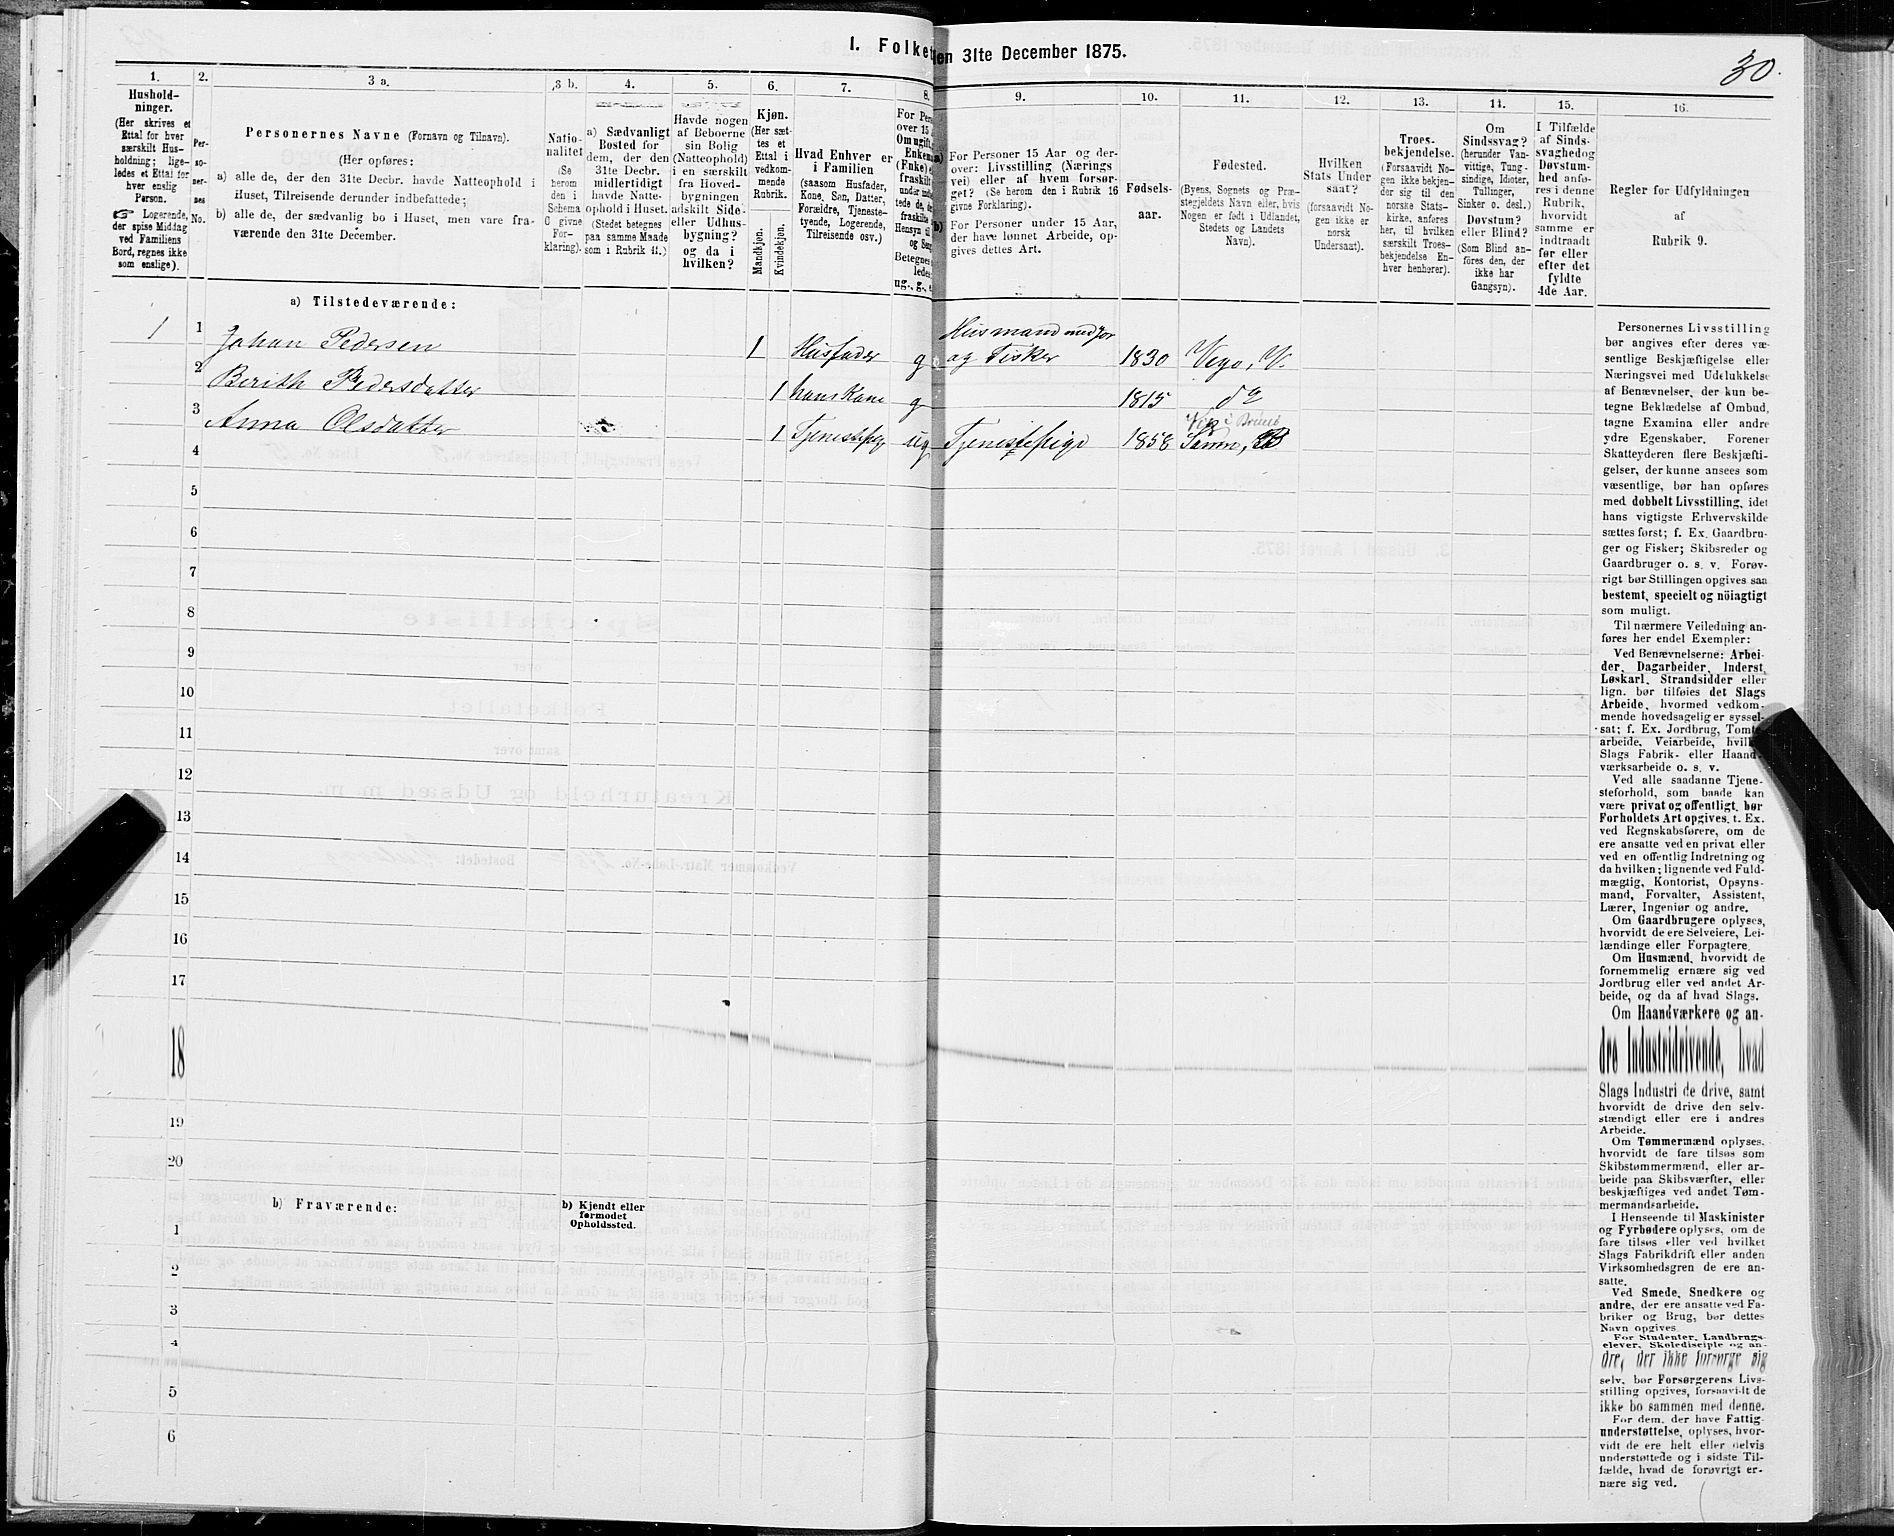 I. Folke en 31te December 1875.
30.
1.
Hushold-
ninger.
(Her skrives et
Ettal for hver
særskilt Hus-
holdning; lige-
ledes et Ettal for
hver enslig
Person.
☞ Logerende,
der spise Middag
ved Familiens
Bord, regnes ikke
som enslige).
2.
Per-
so-
ner-
nes
No.
3 a.
Personernes Navne (Fornavn og Tilnavn).
(Her opføres:
a) alle de, der den 31te Decbr. havde Natteophold i
Huset, Tilreisende derunder indbefattede;
b) alle de, der sædvanlig bo i Huset, men vare fra-
værende den 31te December.
3 b.
Natio-
nalitet
(Se
herom
den i
Schema
C givne
For-
klaring).
4.
a) Sædvanligt
Bosted for
dem, der den
31te Decbr.
midlertidigt
havde Natte-
ophold i Huset.
(Stedet betegnes
paa samme Maade
som i Rubrik 11.)
5.
Havde nogen
af Beboerne
sin Bolig
(Natteophold)
i en særskilt
fra Hoved-
bygningen
adskilt Side-
eller Udhus-
bygning?
og da i
hvilken?
6.
Kjøn.
(Her sæt-
tes et
Ettal i
vedkom-
mende
Rubrik.
Mandkjøn.
Kvindekjøn.
7.
Hvad Enhver er
i Familien
(saasom Husfader,
Kone, Søn, Datter,
Forældre, Tjeneste-
tyende, Logerende,
Tilreisende osv.)
8.
For Pers
over 15 A
Om ugift,
Enkem
(Enke) e
fraskilt
under indbe
tede de, de
fraskilte
Hensyn til
og Sen
Betegnes
ledes
ug., g., e
9.
a) For Personer 15 Aar og der-
over: Livsstilling (Nærings
vei) eller af hvem forsør-
get? (Se herom den i Rubrik 16
givne Forklaring).
b) For Personer under 15 Aar,
der have lønnet Arbeide, op-
gives dettes Art.
10.
Fødsels-
aar.
11.
Fødested.
(Byens, Sognets og Præ-
stegjeldets Navn eller, hvis
Nogen er født i Udlandet,
Stedets og Landets
Navn).
12.
Hvilken
Stats Under
saat?
(forsaavidt No-
gen ikke er
norsk
Undersaat).
13.
Troes-
bekjendelse.
(Forsaavidt No-
gen ikke bekjen-
der sig til den
norske Stats-
kirke, anføres
her, til hvilken
særskilt Troes-
bekjendelse En-
hver henhører).
14.
Om
Sindssvag?
(herunder Van-
vittige, Tung-
sindige, Idioter,
Tullinger,
Sinker o. desl.)
Døvstum?
eller Blind?
(Som Blind an-
føres den, der
ikke har
Gangsyn).
15.
I Tilfælde
af Sinds-
svaghed og
Døvstum-
hed anfø-
res i denne
Rubrik,
hvorvidt
samme er
indtraadt
før eller
efter det
fyldte
4de Aar.
16.
Regler for Udfyldningen
af
Rubrik 9.
a) Tilstedeværende:
1 1 Johan Pedersen 1 Husfader g Husmand med Jor
og Fisker 1830 Vego, V.
2 Berith Pedersdatter 1 hans Kone g 1815 do
3 Anna Olsdatter 1 Tjenestepige ug Tjenestepige 1858
4
5
6
7
8
9
10
11
12
13
14
15
16
17
18
19
20
b) Fraværende:
b) Kjendt eller
formodet
Opholdssted.
1
2
3
4
5
6
Personernes Livsstilling
bør angives efter deres væ-
sentlige Beskjæftigelse eller
Næringsvei med Udelukkelse
af Benævnelser, der kun be-
tegne Beklædelse af Ombud,
tagne Examina eller andre
ydre Egenskaber. Forener
Skatteyderen flere Beskjæfti-
gelser, der kunne ansees som
væsentlige, bør han opføres
med dobbelt Livsstilling, idet
hans vigtigste Erhvervskilde
sættes først; f. Ex. Gaardbru-
ger og Fisker; Skibsreder og
Gaardbruger o. s. v. Forøv-
rigt bør Stillingen opgives saa
bestemt, specielt og nöiagtigt
som muligt.
Til nærmere Veiledning an-
føres her endel Exempler:
Ved Benævnelserne: Arbei-
der, Dagarbeider, Inderst,
Løskarl, Strandsidder eller
lign. bør tilføies det Slags
Arbeide, hvormed vedkom-
mende hovedsagelig er syssel-
sat; f. Ex. Jordbrug, Tomte-
arbeide, Veiarbeide, hvilket
Slags Fabrik- eller Haand-
værksarbeide o. s. v.
Ved alle saadanne Tjene-
steforhold, som baade kan
være privat og offentligt, bør
Forholdets Art opgives, t. Ex.
ved Regnskabsførere, om de
ere ansatte ved en privat eller
ved en offentlig Indretning og
da hvilken; lignende ved Fuld-
mægtig, Kontorist, Opsyns-
mand, Forvalter, Assistent,
Lærer, Ingeniør og andre.
Om Gaardbrugere oplyses,
hvorvidt de ere Selveiere, Lei-
lændinge eller Forpagtere.
Om Husmænd, hvorvidt de
fornemmelig ernære sig ved
Jordbrug eller ved andet Ar-
beide, og da af hvad Slags.
Om Haandværkere og an-
dre Industridrivende, hvad
Slags Industri de drive, samt
hvorvidt de drive den selv-
stændigt eller ere i andres
Arbeide.
Om Tømmermænd oplyses,
hvorvidt de fare tilsøs som
Skibstømmermænd, eller ar-
beide paa Skibsværfter, eller
beskjæftiges ved andet Tøm-
mermandsarbeide.
I Henseende til Maskinister
og Fyrbødere oplyses, om de
fare tilsøs eller ved hvilket
Slags Fabrikdrift eller anden
Virksomhedsgren de ere an-
satte.
Ved Smede, Snedkere og
andre, der ere ansatte ved Fa-
briker og Brug, bør dettes
Navn opgives
For Studenter, Landbrugs-
elever, Skoledisciple og an-
dre, der ikke forsørge sig
selv, bør Forsørgerens Livs-
stilling opgives, forsaavidt de
ikke bo sammen med denne.
For dem, der have Fattig-
understøttelse, oplyses, hvor-
vidt de ere helt eller delvis
understøttede og i sidste Til-
fælde, hvad de forøvrigt er-
nære sig ved.